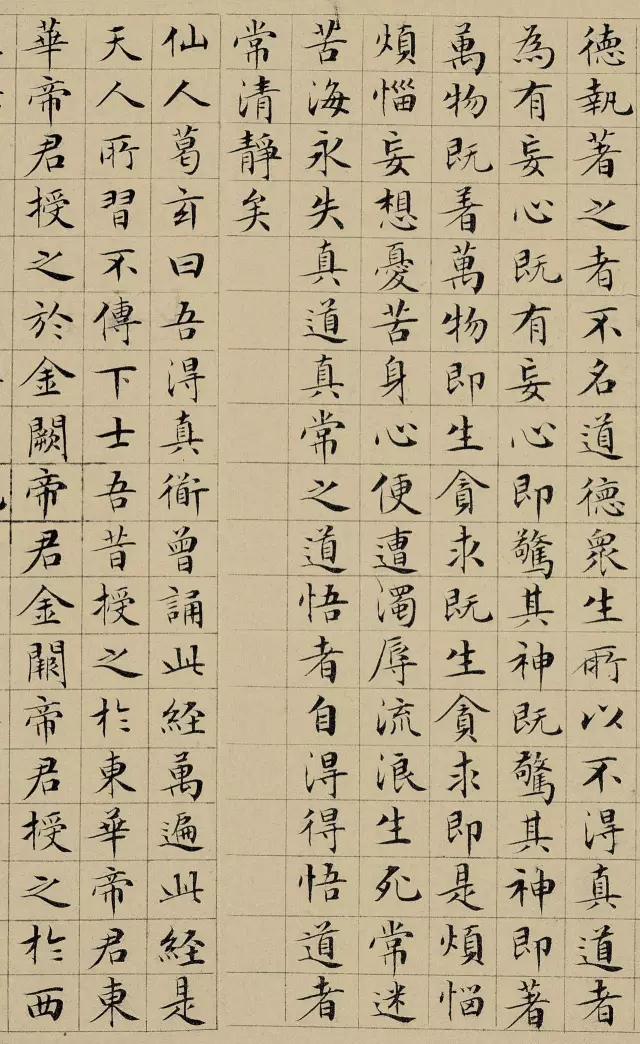 德執著之者不名道德衆生所以不得真道者
為有妄心既有妄心即驚其神既驚其神即著
萬物既着萬物即生貪求既生貪求即是煩惱
煩惱妄想憂苦身心便遭濁辱流浪生死常迷
苦海永失真道真常之道悟者自得得悟道者
常清靜矣
仙人葛玄曰吾得真衜曾誦此経萬遍此経是
天人所習不傳下士吾昔授之於東華帝君東
華帝君授之於金闕帝君金闕帝君授之於西